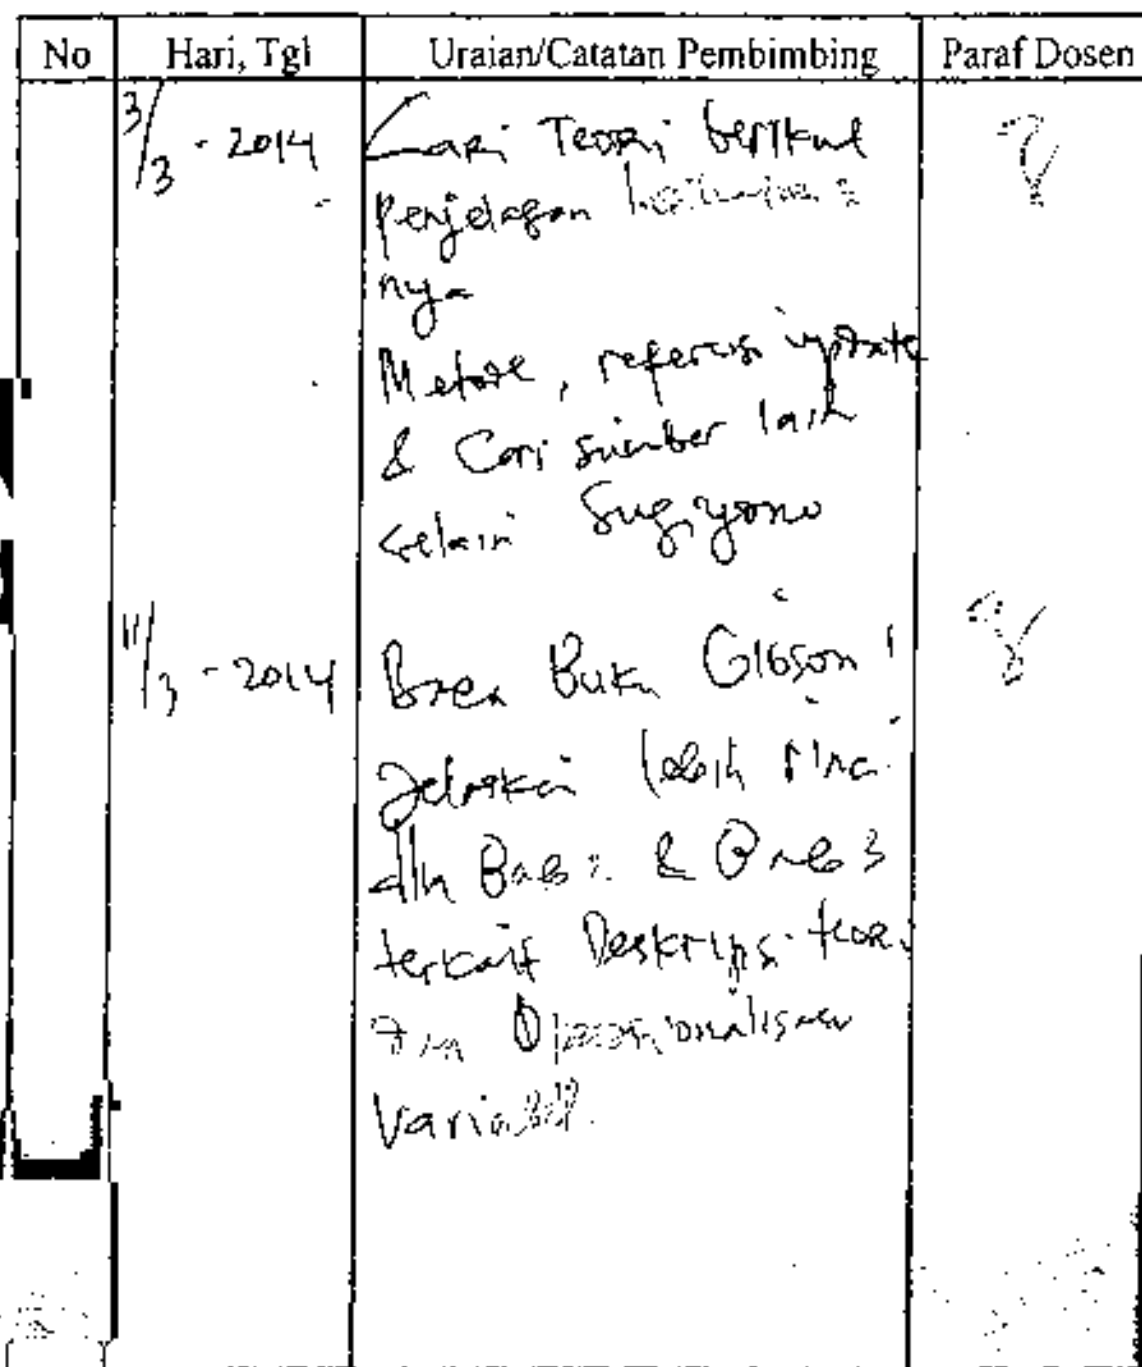 No Hari, Tgl Uraian/Catatan Pembimbing Paraf Dosen
3/3 - 2014 Cari Teori berikut
Penjelasan
nya
Metode, referensi update
& Cari sumber lain
selain Sugiyono
11/3 - 2014 Baca Buku Gibson !
Jelaskan lebih rinci
dlm Bab 2 & Bab 3
terkait Deskripsi teori
dan Operasionalisasi
Variabel.